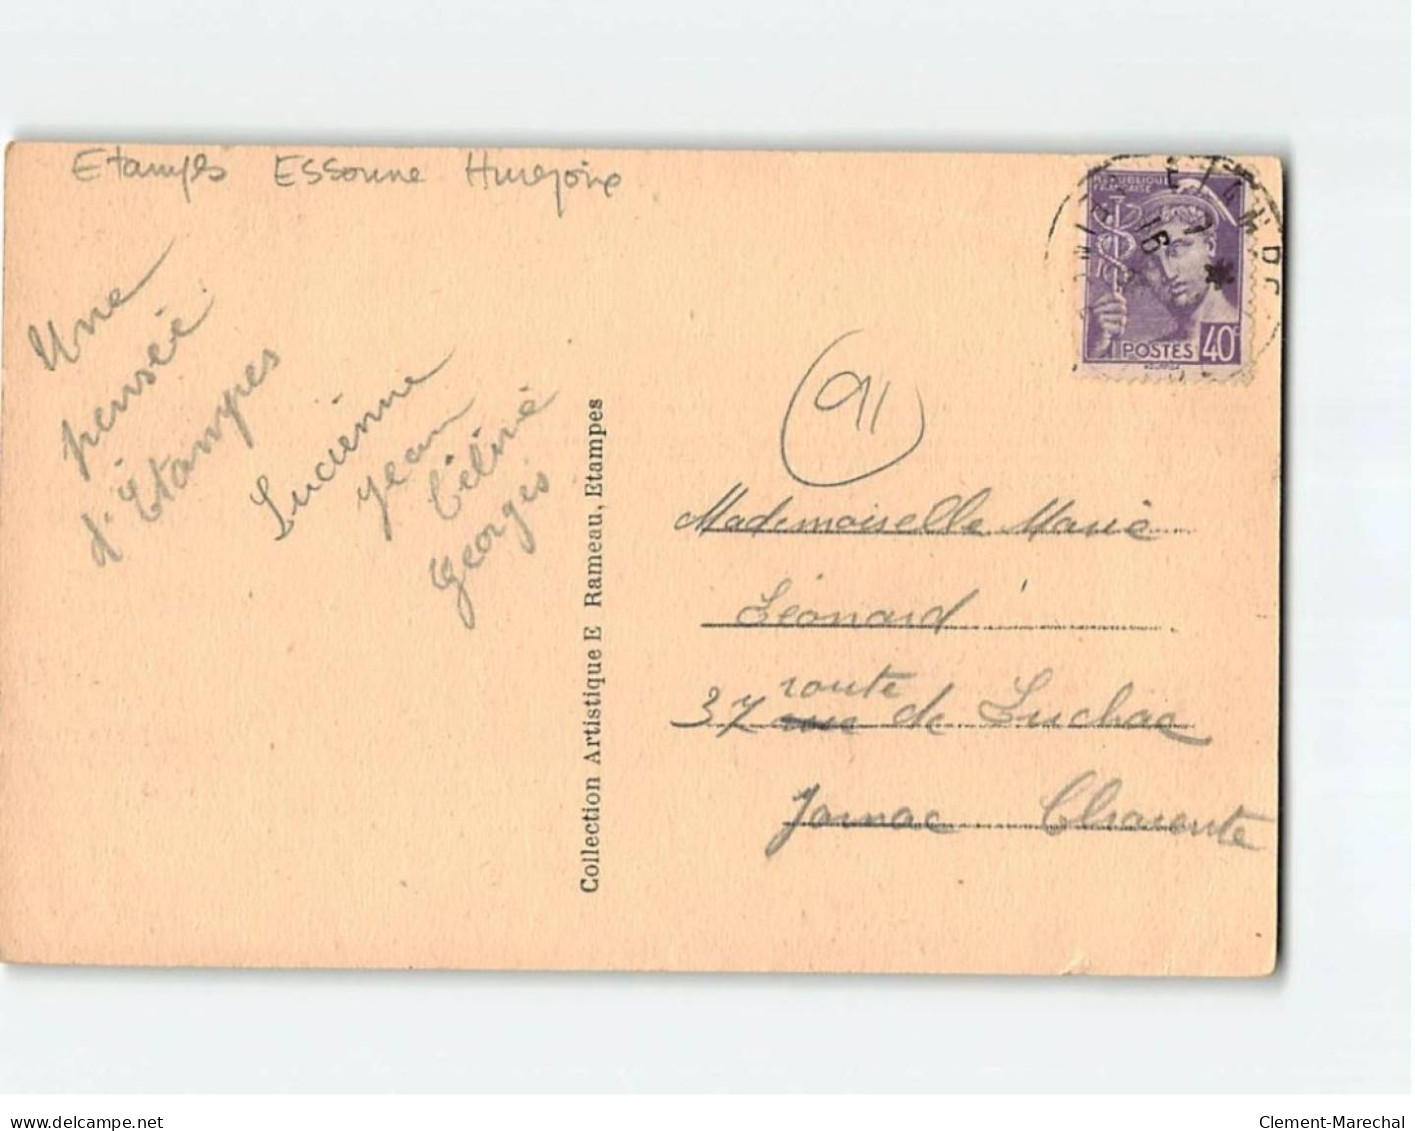 Etampes Essonne Hurepoix
Une
pensée
d'Etampes
Lucienne
Jean
Céline
Georges
Collection Artistique E Rameau, Etampes
REPUBLIQUE
FRANÇAISE
POSTES 40c
16
91
Mademoiselle Marie
Léonard
route
37 rue de Luchac
Jarnac Charente
www.delcampe.net
Clement-Marechal